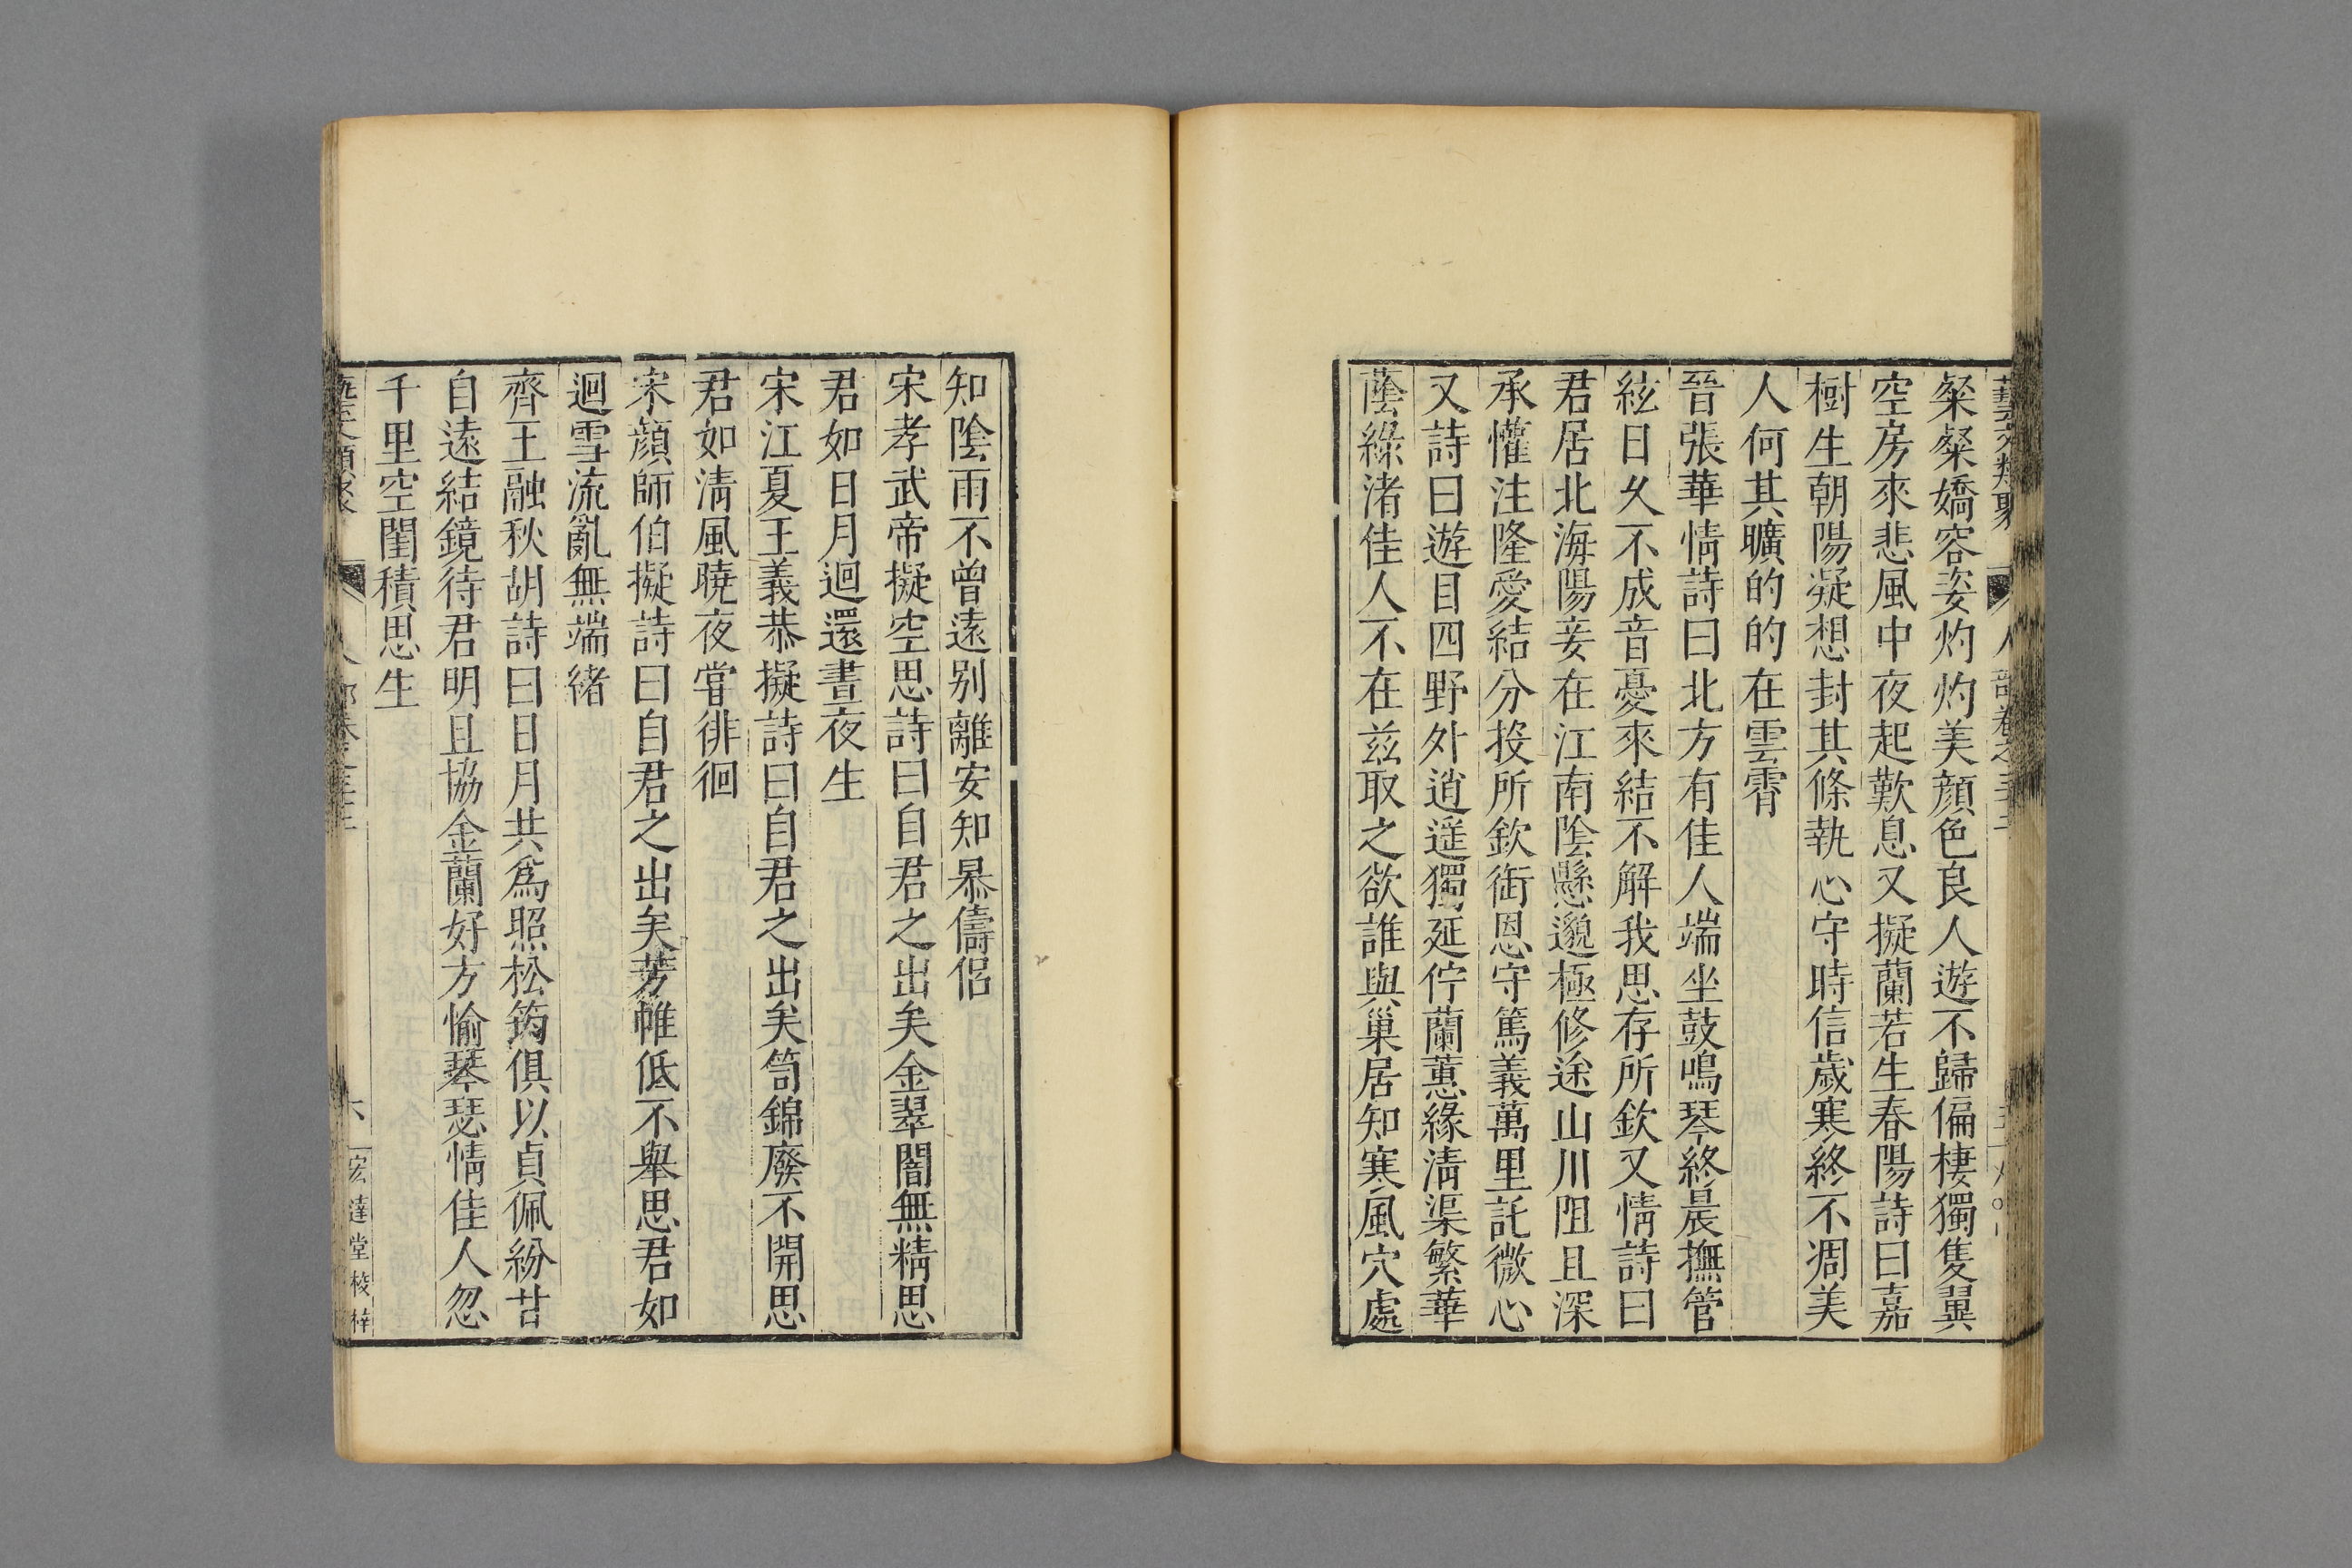 粲粲嬌容姿灼灼美顔色良人遊不歸偏棲獨隻翼
空房來悲風中夜起歎息又擬蘭若生春陽詩曰嘉
樹生朝陽凝想封其條執心守時信歲寒終不凋美
人何其曠的的在雲霄
晉張華情詩曰北方有佳人端坐鼓鳴琴終晨撫管
絃日久不成音憂來結不解我思存所欽又情詩曰
君居北海陽妾在江南陰懸邈極修途山川阻且深
承懽注隆愛結分投所欽銜恩守篤義萬里託微心
又詩曰遊目四野外逍遥獨延佇蘭蕙緣淸渠繁華
蔭綠渚佳人不在兹取之欲誰與巢居知寒風穴處
知陰雨不曾遠别離安知慕儔侶
宋孝武帝擬空思詩曰自君之出矣金翠闇無精思
君如日月迴還晝夜生
宋江夏王義恭擬詩曰自君之出矣笥錦廢不開思
君如淸風曉夜甞徘徊
宋顔師伯擬詩曰自君之出矣芳帷低不舉思君如
迴雪流亂無端緒
齊王融秋胡詩曰日月共爲照松筠俱以貞佩紛甘
自遠結鏡待君明且協金蘭好方愉琴瑟情佳人忽
千里空閨積思生
宏達堂校梓